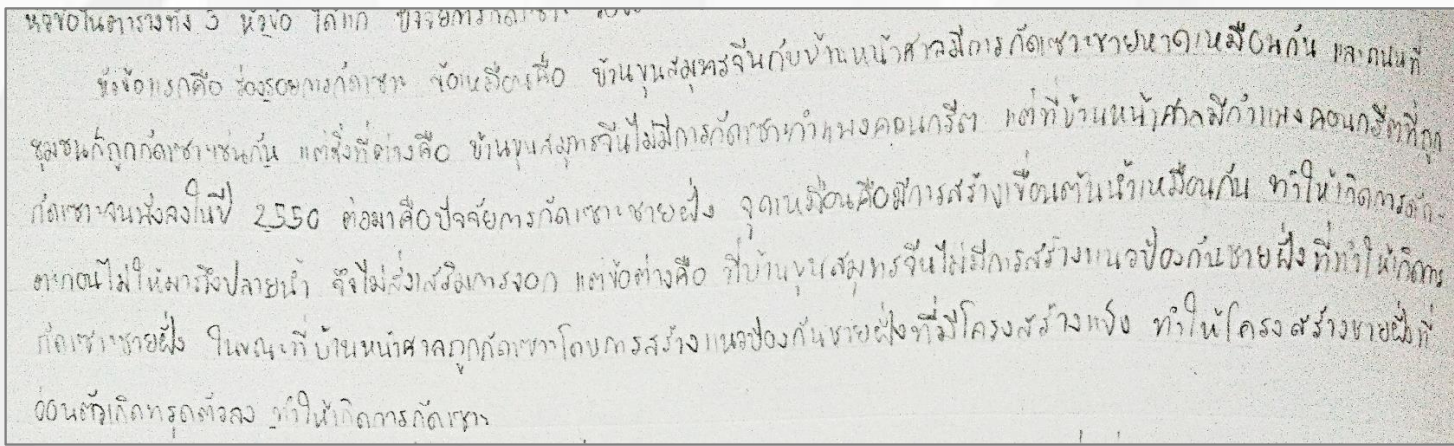 หัวข้อในตารางทั้ง 3 หัวข้อ ได้แก่ ปัจจัยการกัดเซาะ
หัวข้อแรกคือ ร่องรอยการกัดเซาะ ข้อเหมือนคือ บ้านขุนสมุทรจีนกับบ้านหน้าศาลมีการกัดเซาะชายหาดเหมือนกัน และถนนที่
ชุมชนก็ถูกกัดเซาะเช่นกัน แต่สิ่งที่ต่างคือ บ้านขุนสมุทรจีนไม่มีการกัดเซาะกำแพงคอนกรีต แต่ที่บ้านหน้าศาลมีกำแพงคอนกรีตที่ถูก
กัดเซาะจนพังลงในปี 2550 ต่อมาคือปัจจัยการกัดเซาะชายฝั่ง จุดเหมือนคือมีการสร้างเขื่อนต้นน้ำเหมือนกัน ทำให้เกิดการดัก-
ตะกอนไม่ให้มาถึงปลายน้ำ จึงไม่ส่งเสริมการงอก แต่ข้อต่างคือ ที่บ้านขุนสมุทรจีนไม่มีการสร้างแนวป้องกันชายฝั่งที่ทำให้เกิดการ
กัดเซาะชายฝั่ง ในขณะที่บ้านหน้าศาลถูกกัดเซาะโดยการสร้างแนวป้องกันชายฝั่งที่มีโครงสร้างแข็ง ทำให้โครงสร้างชายฝั่งที่
อ่อนตัวเกิดทรุดตัวลง ทำให้เกิดการกัดเซาะ